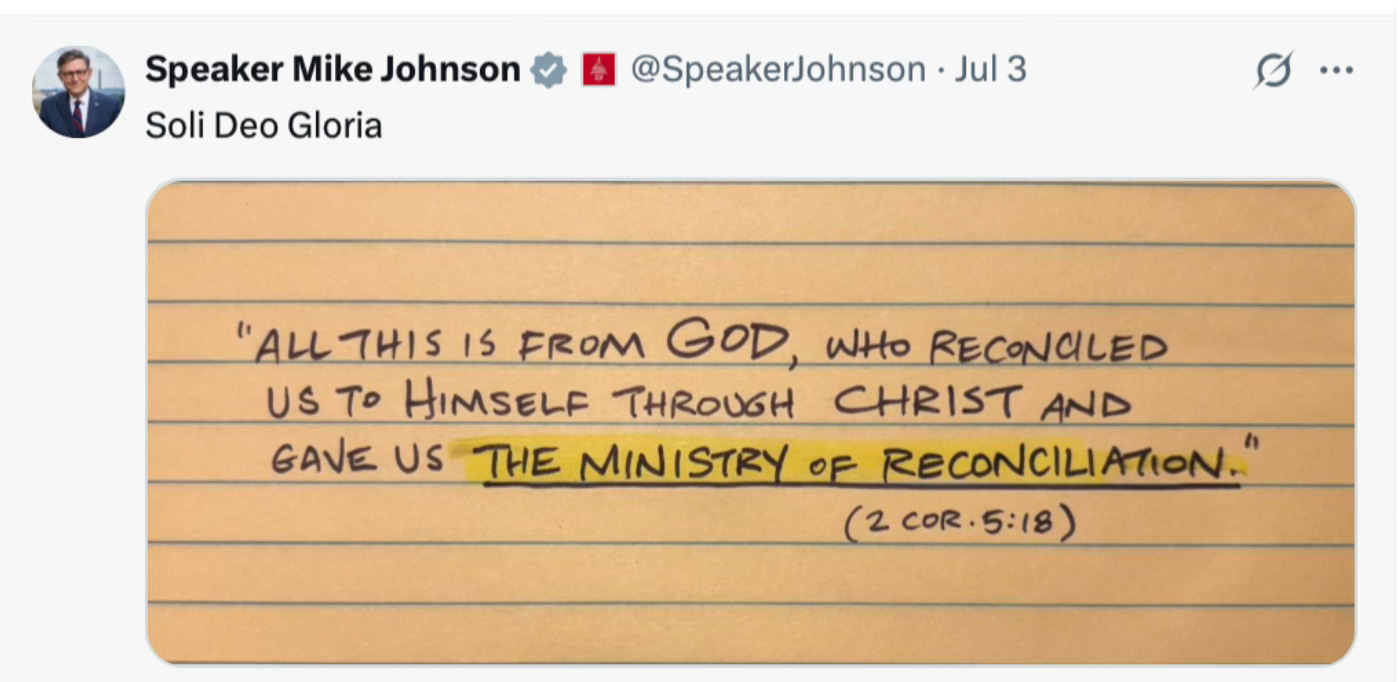 Speaker Mike Johnson @SpeakerJohnson · Jul 3
Soli Deo Gloria
"ALL THIS IS FROM GOD, WHO RECONCILED
US TO HIMSELF THROUGH CHRIST AND
GAVE US THE MINISTRY OF RECONCILIATION."
(2 COR. 5:18)